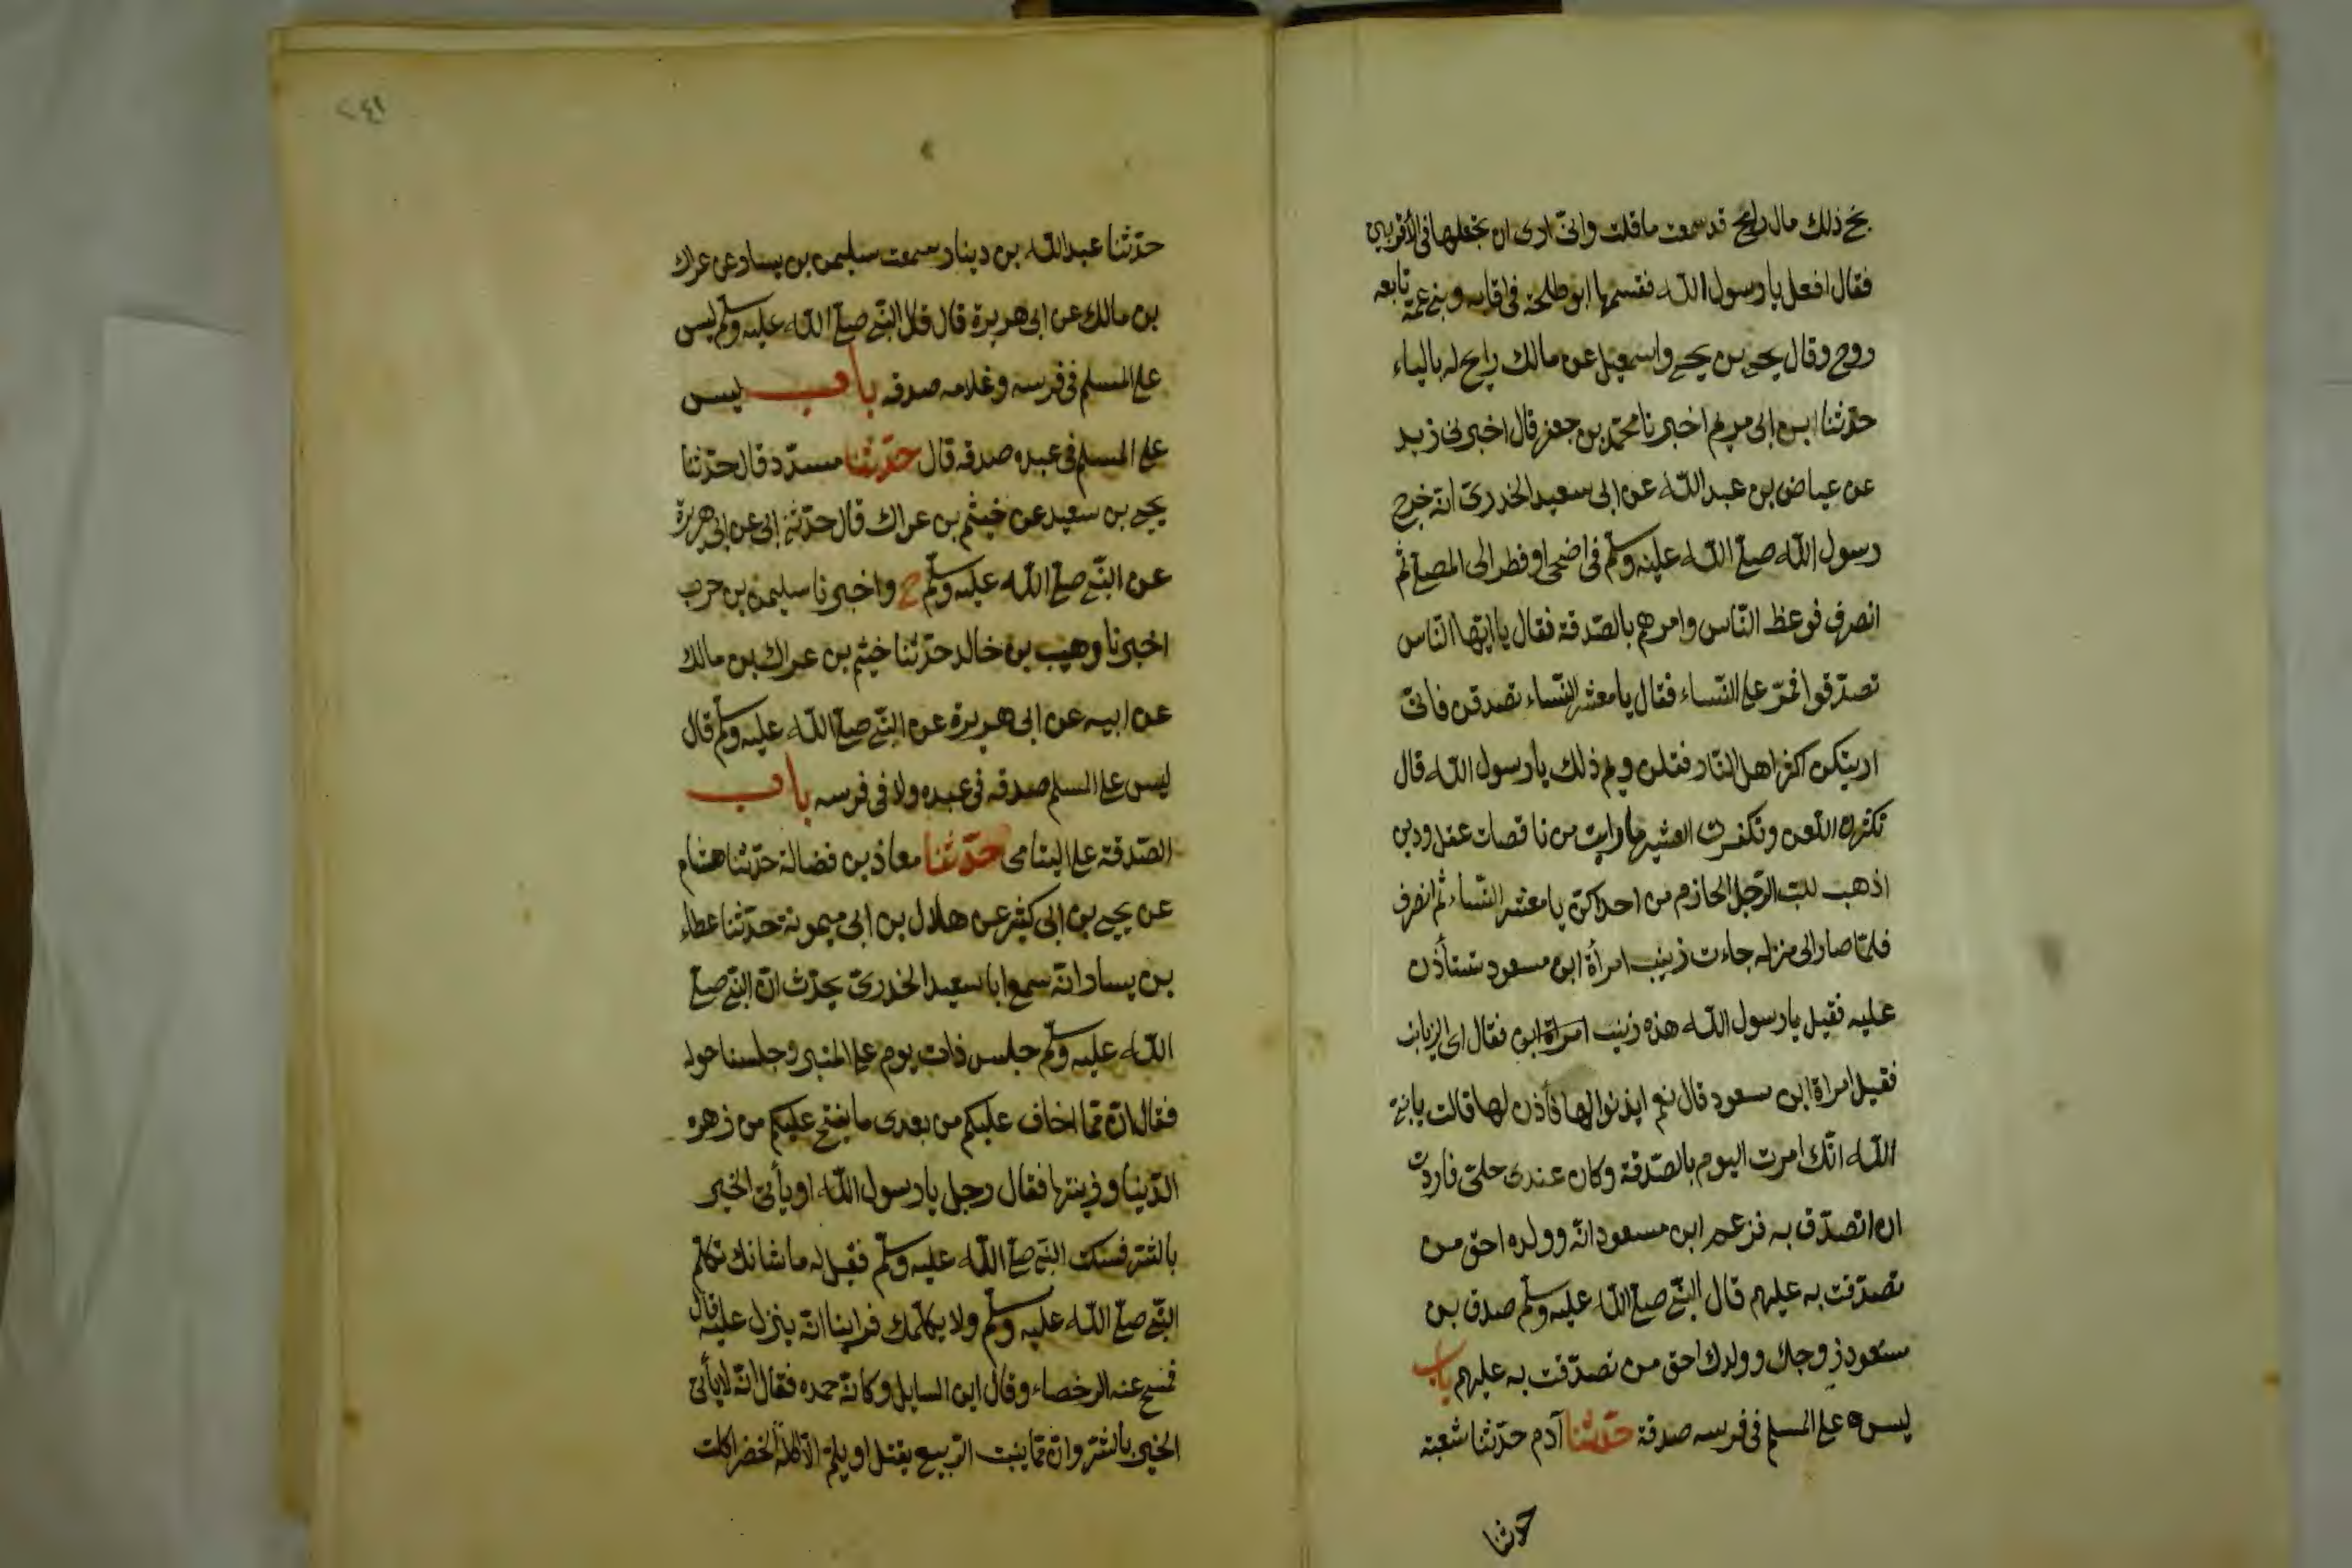 بخ ذلك مال رابح قد سمعت ما قلت وانى ارى ان تجعلها فى الأقربين
فقال افعل يا رسول الله فقسمها ابو طلحة فى اقاربه وبنى عمه تابعه
روح وقال يحيى بن يحيى واسمعيل عن مالك رايح له بالياء
حدّثنا ابن ابى مريم اخبرنا محمد بن جعفر قال اخبرنى زيد
عن عياض بن عبد الله عن ابى سعيد الخدرى انه خرج
رسول الله صلى الله عليه وسلم فى اضحى او فطر الى المصلى ثم
انصرف فوعظ الناس وامرهم بالصّدقة فقال يا ايها الناس
تصدّقوا فمرّ على النساء فقال يا معشر النساء تصدقن فانى
اريتكن اكثر اهل النار فقلن وبم ذلك يا رسول الله قال
تكثرن اللعن وتكفرن العشير ما رايت من ناقصات عقل ودين
اذهب للب الرّجل الحازم من احداكنّ يا معشر النساء ثم انصرف
فلمّا صار الى منزله جاءت زينب امرأة ابن مسعود تستأذن
عليه فقيل يا رسول الله هذه زينب امراة ابن فقال اى الزيانب
فقيل امراة ابن مسعود قال نعم ايذنوا لها فأذن لها قالت يا نبى
الله انّك امرت اليوم بالصّدقة وكان عندى حلى فاردت
ان اتصدّق به فزعم ابن مسعود انّه وولده احق من
تصدّقت به عليهم قال النبى صلى الله عليه وسلم صدق بن
مسعود زوجك وولدك احق من تصدّقت به عليهم باب
ليس على المسلم فى فرسه صدقة حدّثنا آدم حدّثنا شعبة
حدثنا
٢٤١
حدّثنا عبد الله بن دينار سمعت سليمن بن يسار عن عراك
بن مالك عن ابى هريرة قال قال النبى صلى الله عليه وسلم ليس
على المسلم فى فرسه وغلامه صدقه باب ليس
على المسلم فى عبده صدقه قال حدّثنا مسدّد قال حدّثنا
يحيى بن سعيد عن خيثم بن عراك قال حدّثنى ابى عن ابى هريرة
عن النبى صلى الله عليه وسلم ح واخبرنا سليمن بن حرب
اخبرنا وهيب بن خالد حدّثنا خيثم بن عراك بن مالك
عن ابيه عن ابى هريرة عن النبى صلى الله عليه وسلم قال
ليس على المسلم صدقه فى عبده ولا فى فرسه باب
الصّدقة على اليتامى حدّثنا معاذ بن فضالة حدّثنا هشام
عن يحيى بن ابى كثير عن هلال بن ابى ميمونة حدّثنا عطاء
بن يسار انّه سمع ابا سعيد الخدرىّ يحدّث انّ النبى صلى
الله عليه وسلم جلس ذات يوم على المنبر وجلسنا حوله
فقال انّ ممّا اخاف عليكم من بعدى ما يفتح عليكم من زهرة
الدّنيا وزينتها فقال رجل يا رسول الله او يأتى الخير
بالشّر فسكت النبى صلى الله عليه وسلم فقيل له ما شانك تكلم
النبى صلى الله عليه وسلم ولا يكلّمك فراينا انّه ينزل عليه قال
فمسح عنه الرحضاء وقال اين السايل وكانّه حمده فقال انّه لا يأتى
الخير بالشّر وان ممّا ينبت الرّبيع يقتل او يلمّ الا آكلة الخضر اكلت